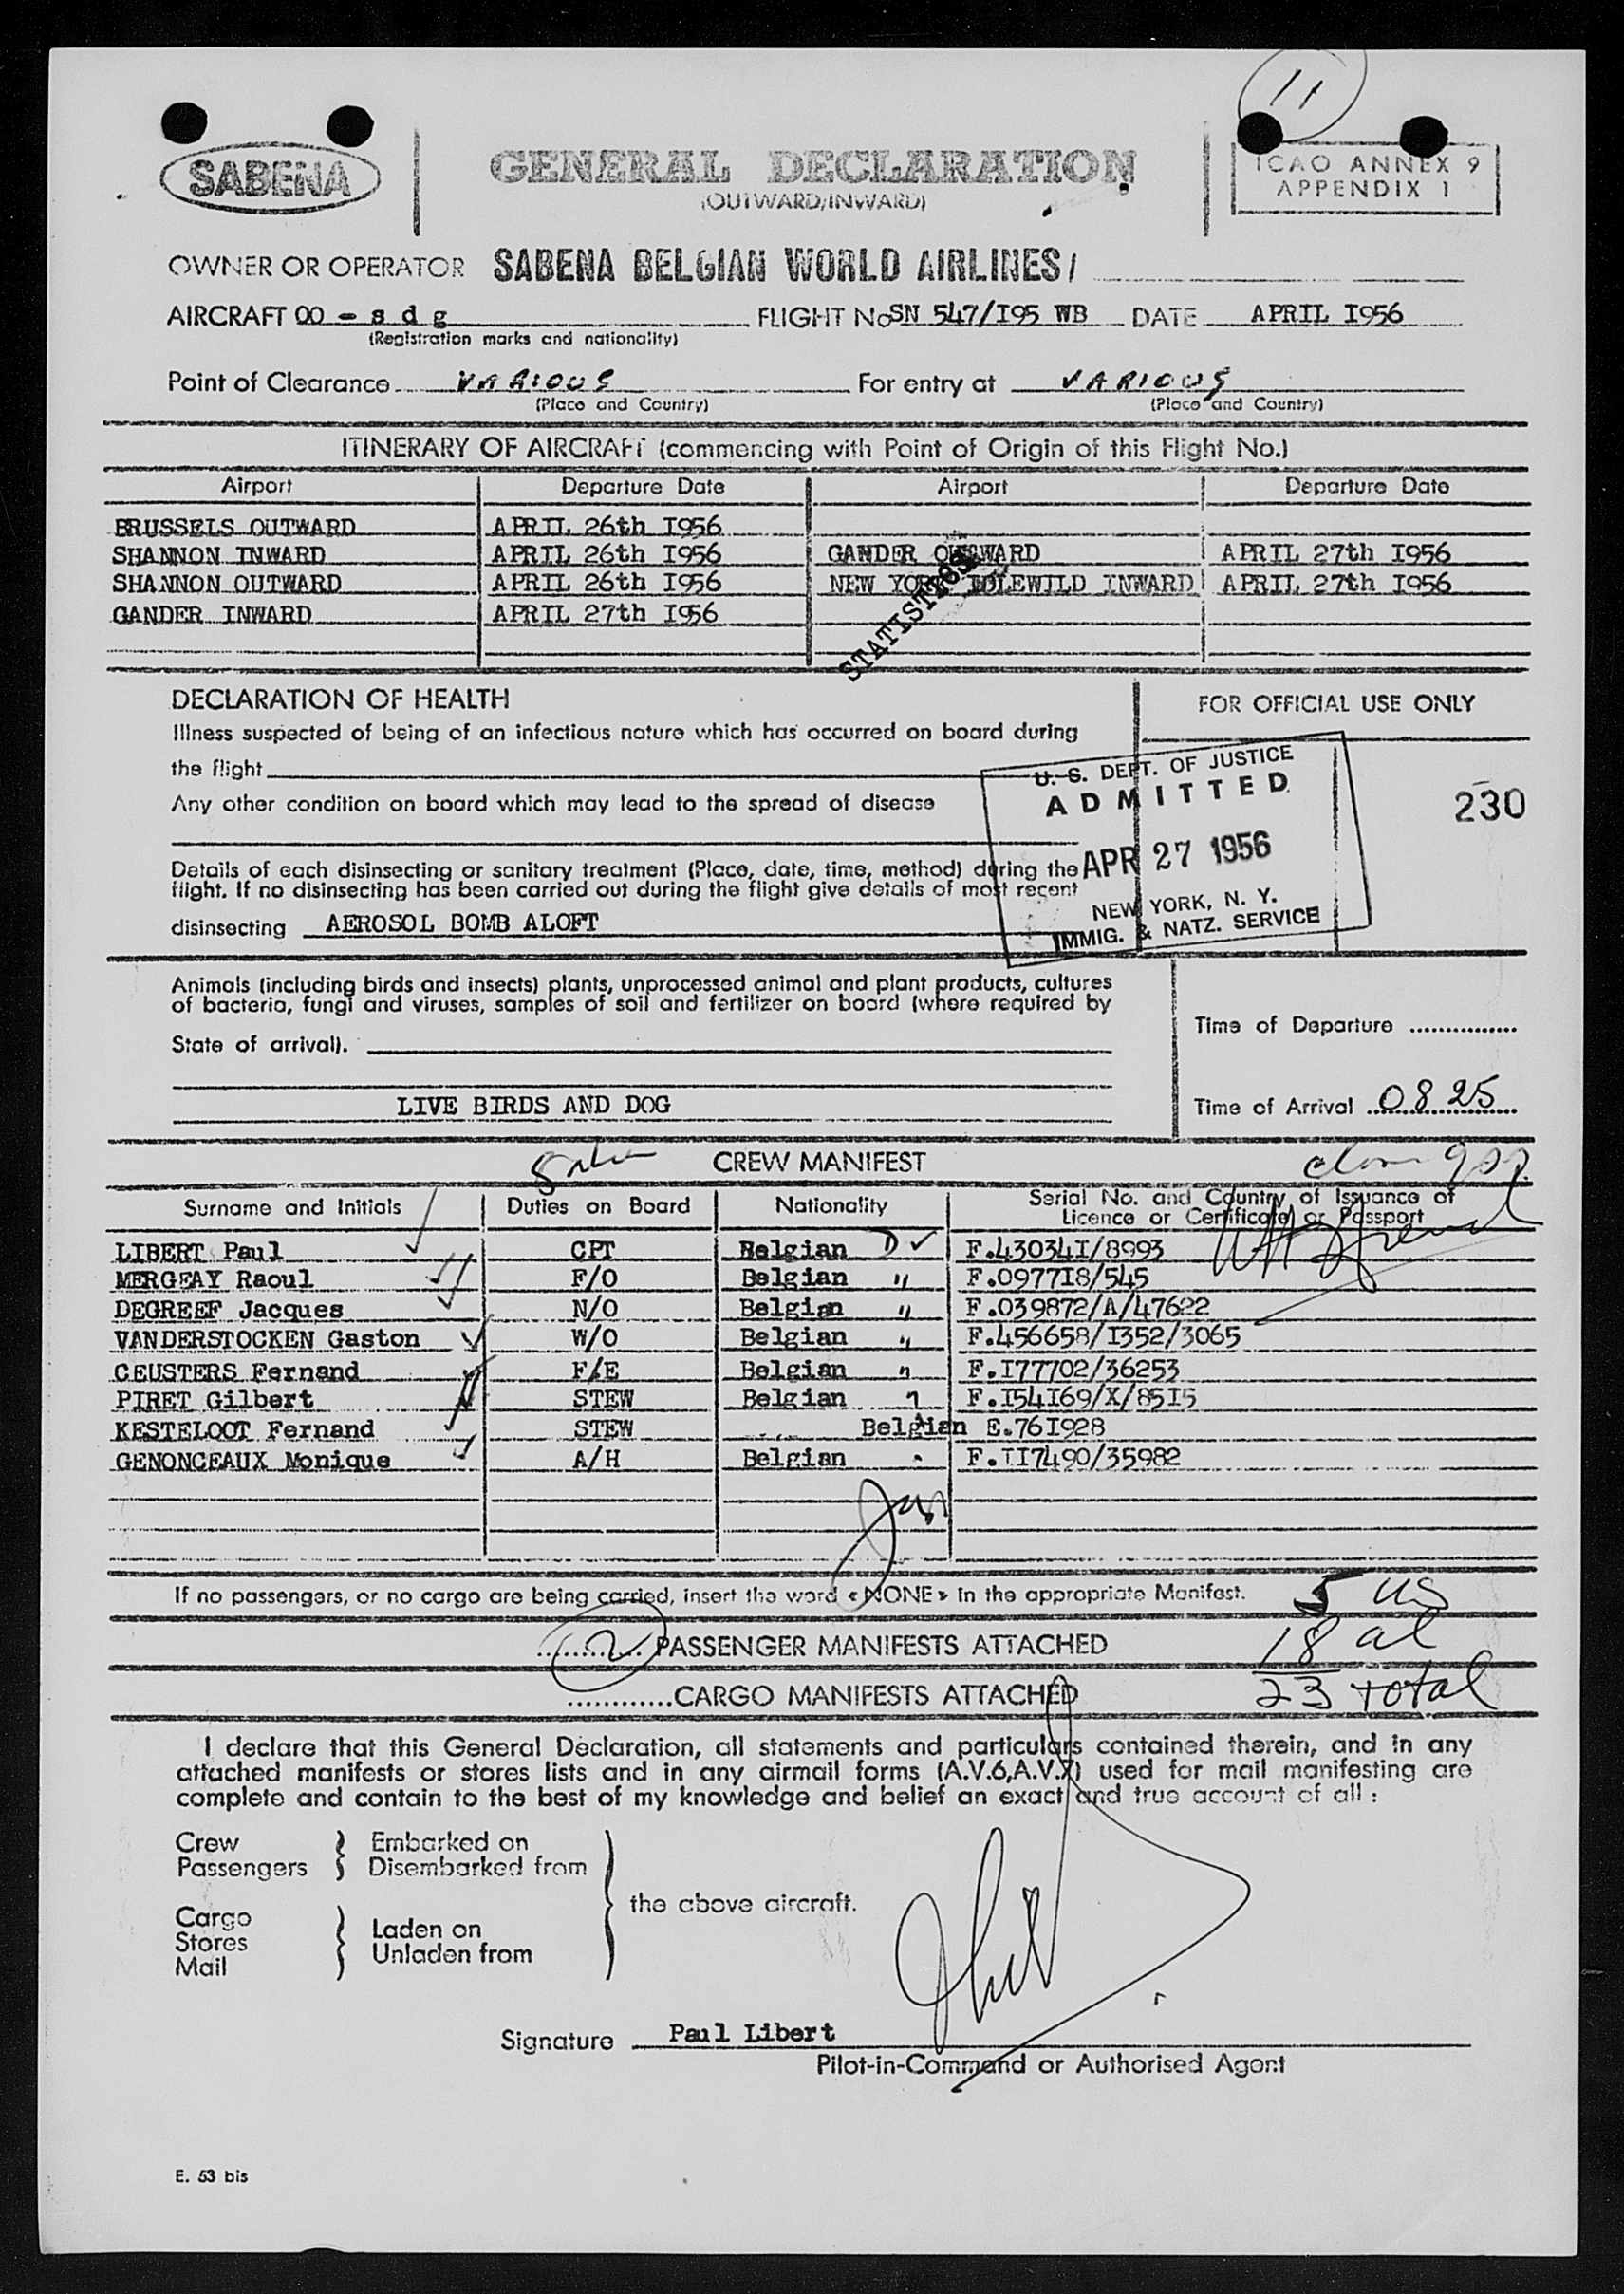 11
SABENA
GENERAL DECLARATION
(OUTWARD/INWARD)
ICAO ANNEX 9
APPENDIX 1
OWNER OR OPERATOR SABENA BELGIAN WORLD AIRLINES/
AIRCRAFT OO - s d g FLIGHT No SN 547/I95 WB DATE APRIL I956
(Registration marks and nationality)
Point of Clearance VARIOUS For entry at VARIOUS
(Place and Country) (Place and Country)
ITINERARY OF AIRCRAFT (commencing with Point of Origin of this Flight No.)
Airport Departure Date Airport Departure Date
BRUSSELS OUTWARD APRIL 26th I956
SHANNON INWARD APRIL 26th I956 GANDER OUTWARD APRIL 27th I956
SHANNON OUTWARD APRIL 26th I956 NEW YORK IDLEWILD INWARD APRIL 27th I956
GANDER INWARD APRIL 27th I956
STATISTICS
DECLARATION OF HEALTH
FOR OFFICIAL USE ONLY
Illness suspected of being of an infectious nature which has occurred on board during
the flight
Any other condition on board which may lead to the spread of disease
U. S. DEPT. OF JUSTICE
ADMITTED
APR 27 1956
NEW YORK, N. Y.
IMMIG. & NATZ. SERVICE
230
Details of each disinsecting or sanitary treatment (Place, date, time, method) during the
flight. If no disinsecting has been carried out during the flight give details of most recent
disinsecting AEROSOL BOMB ALOFT
Animals (including birds and insects) plants, unprocessed animal and plant products, cultures
of bacteria, fungi and viruses, samples of soil and fertilizer on board (where required by
State of arrival).
Time of Departure ...............
LIVE BIRDS AND DOG
Time of Arrival 0825
CREW MANIFEST
Surname and Initials Duties on Board Nationality Serial No. and Country of Issuance of
Licence or Certificate or Passport
LIBERT Paul CPT Belgian D ✓ F.43034I/8993
MERGEAY Raoul F/O Belgian " F.0977I8/545
DEGREEF Jacques N/O Belgian " F.039872/A/47622
VANDERSTOCKEN Gaston W/O Belgian " F.456658/I352/3065
CEUSTERS Fernand F/E Belgian " F.I77702/36253
PIRET Gilbert STEW Belgian " F.I54I69/X/85I5
KESTELOOT Fernand STEW Belgian E.76I928
GENONCEAUX Monique A/H Belgian F.II7490/35982
If no passengers, or no cargo are being carried, insert the word « NONE » in the appropriate Manifest.
5 us
2 PASSENGER MANIFESTS ATTACHED
18 al
............CARGO MANIFESTS ATTACHED
23 total
I declare that this General Declaration, all statements and particulars contained therein, and in any
attached manifests or stores lists and in any airmail forms (A.V.6,A.V.7) used for mail manifesting are
complete and contain to the best of my knowledge and belief an exact and true account of all :
Crew
Passengers
Embarked on
Disembarked from
Cargo
Stores
Mail
Laden on
Unladen from
the above aircraft.
Signature Paul Libert
Pilot-in-Command or Authorised Agent
E. 53 bis